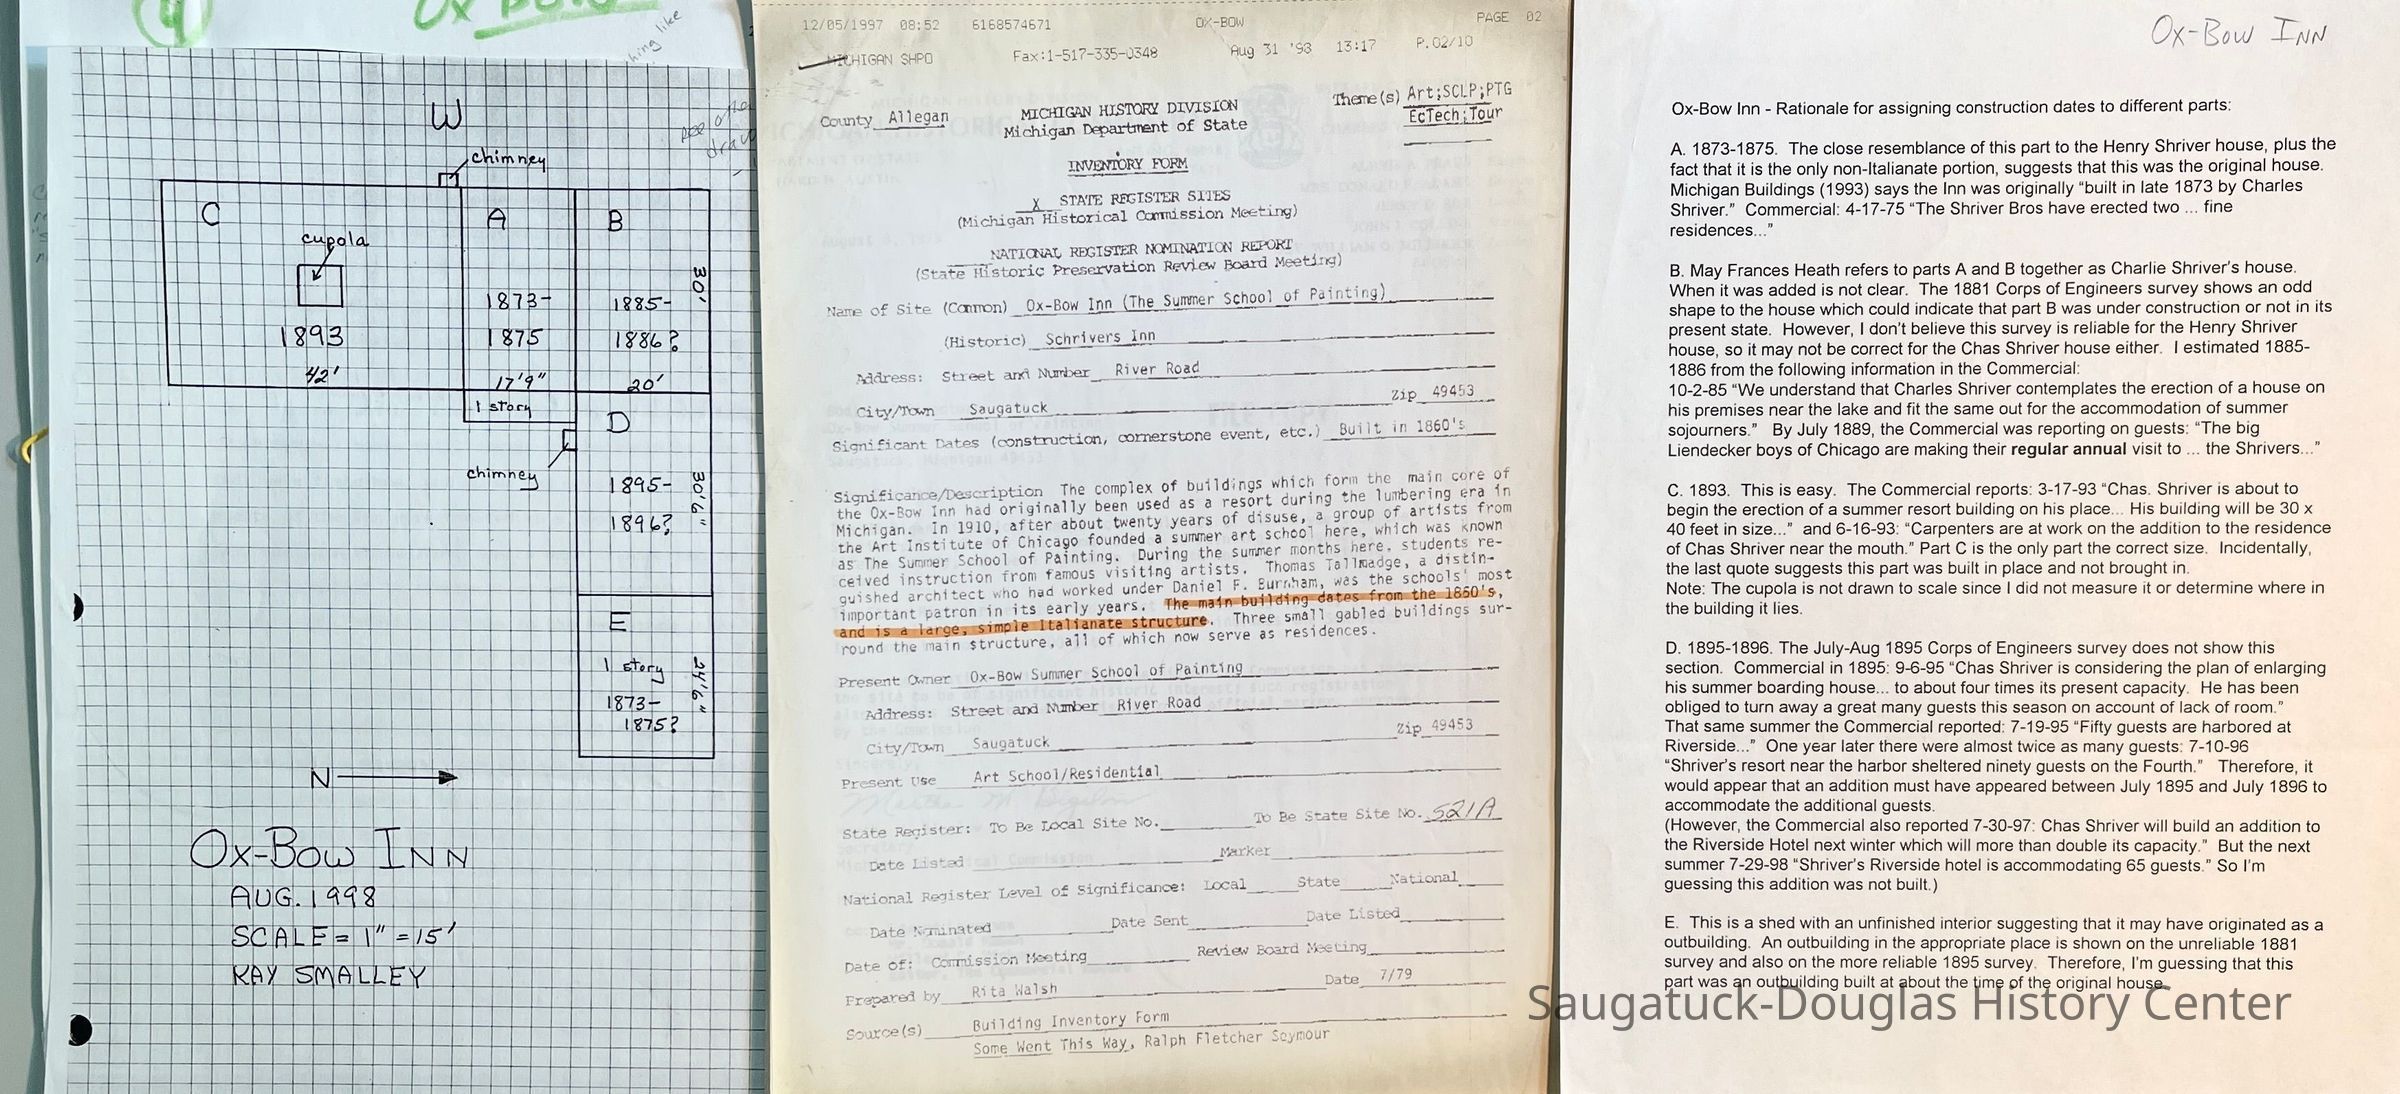 4
Ox Bow
thing like
see other
W
chimney
C
A
B
cupola
30'
1873-
1885-
1893
1875
1886?
42'
17'9"
20'
1 story
D
chimney
1895-
30'6"
1896?
E
1 story
24'6"
1873-
1875?
N
OX-BOW INN
AUG. 1998
SCALE = 1" = 15'
KAY SMALLEY
12/05/1997 08:52 6168574671 OX-BOW PAGE 02
MICHIGAN SHPO Fax:1-517-335-0348 Aug 31 '93 13:17 P.02/10
County Allegan
MICHIGAN HISTORY DIVISION
Michigan Department of State
Theme(s) Art;SCLP;PTG
EcTech;Tour
INVENTORY FORM
X STATE REGISTER SITES
(Michigan Historical Commission Meeting)
NATIONAL REGISTER NOMINATION REPORT
(State Historic Preservation Review Board Meeting)
Name of Site (Common) Ox-Bow Inn (The Summer School of Painting)
(Historic) Schrivers Inn
Address: Street and Number River Road
City/Town Saugatuck Zip 49453
Significant Dates (construction, cornerstone event, etc.) Built in 1860's
Significance/Description The complex of buildings which form the main core of
the Ox-Bow Inn had originally been used as a resort during the lumbering era in
Michigan. In 1910, after about twenty years of disuse, a group of artists from
the Art Institute of Chicago founded a summer art school here, which was known
as The Summer School of Painting. During the summer months here, students re-
ceived instruction from famous visiting artists. Thomas Tallmadge, a distin-
guished architect who had worked under Daniel F. Burnham, was the schools' most
important patron in its early years. The main building dates from the 1860's,
and is a large, simple Italianate structure. Three small gabled buildings sur-
round the main structure, all of which now serve as residences.
Present Owner Ox-Bow Summer School of Painting
Address: Street and Number River Road
City/Town Saugatuck Zip 49453
Present Use Art School/Residential
State Register: To Be Local Site No. To Be State Site No. 521A
Date Listed Marker
National Register Level of Significance: Local State National
Date Nominated Date Sent Date Listed
Date of: Commission Meeting Review Board Meeting
Prepared by Rita Walsh Date 7/79
Source(s) Building Inventory Form
Some Went This Way, Ralph Fletcher Seymour
OX-BOW INN
Ox-Bow Inn - Rationale for assigning construction dates to different parts:
A. 1873-1875. The close resemblance of this part to the Henry Shriver house, plus the
fact that it is the only non-Italianate portion, suggests that this was the original house.
Michigan Buildings (1993) says the Inn was originally “built in late 1873 by Charles
Shriver.” Commercial: 4-17-75 “The Shriver Bros have erected two ... fine
residences...”
B. May Frances Heath refers to parts A and B together as Charlie Shriver's house.
When it was added is not clear. The 1881 Corps of Engineers survey shows an odd
shape to the house which could indicate that part B was under construction or not in its
present state. However, I don't believe this survey is reliable for the Henry Shriver
house, so it may not be correct for the Chas Shriver house either. I estimated 1885-
1886 from the following information in the Commercial:
10-2-85 “We understand that Charles Shriver contemplates the erection of a house on
his premises near the lake and fit the same out for the accommodation of summer
sojourners.” By July 1889, the Commercial was reporting on guests: “The big
Liendecker boys of Chicago are making their regular annual visit to ... the Shrivers...”
C. 1893. This is easy. The Commercial reports: 3-17-93 “Chas. Shriver is about to
begin the erection of a summer resort building on his place... His building will be 30 x
40 feet in size...” and 6-16-93: “Carpenters are at work on the addition to the residence
of Chas Shriver near the mouth.” Part C is the only part the correct size. Incidentally,
the last quote suggests this part was built in place and not brought in.
Note: The cupola is not drawn to scale since I did not measure it or determine where in
the building it lies.
D. 1895-1896. The July-Aug 1895 Corps of Engineers survey does not show this
section. Commercial in 1895: 9-6-95 “Chas Shriver is considering the plan of enlarging
his summer boarding house... to about four times its present capacity. He has been
obliged to turn away a great many guests this season on account of lack of room.”
That same summer the Commercial reported: 7-19-95 “Fifty guests are harbored at
Riverside...” One year later there were almost twice as many guests: 7-10-96
“Shriver's resort near the harbor sheltered ninety guests on the Fourth.” Therefore, it
would appear that an addition must have appeared between July 1895 and July 1896 to
accommodate the additional guests.
(However, the Commercial also reported 7-30-97: Chas Shriver will build an addition to
the Riverside Hotel next winter which will more than double its capacity.” But the next
summer 7-29-98 “Shriver's Riverside hotel is accommodating 65 guests.” So I'm
guessing this addition was not built.)
E. This is a shed with an unfinished interior suggesting that it may have originated as a
outbuilding. An outbuilding in the appropriate place is shown on the unreliable 1881
survey and also on the more reliable 1895 survey. Therefore, I'm guessing that this
part was an outbuilding built at about the time of the original house.
Saugatuck-Douglas History Center